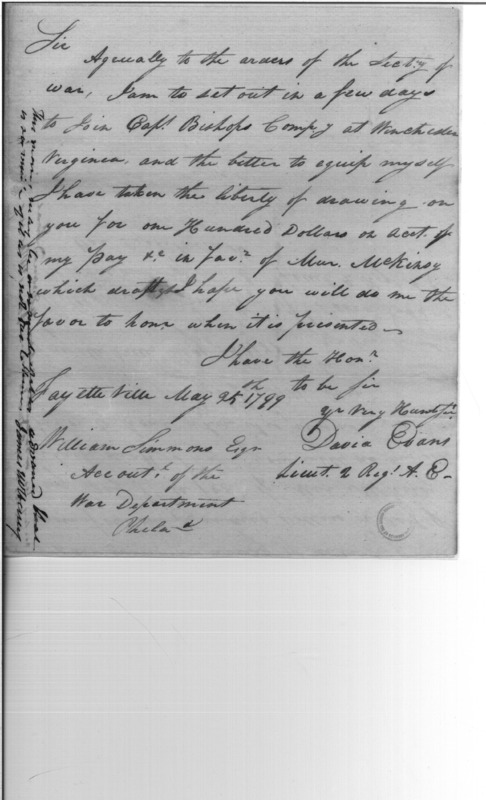 Sir
Agreeably to the orders of the Secty of
war, I am to set out in a few days
to Join Capt. Bishops Compy at Winchester
Virginia, and the better to equip myself
I have taken the liberty of drawing on
you for one Hundred Dollars on Acct. of
my Pay &c in favr. of Murr. McKinsy
which draft I hope you will do me the
favor to honr when it is presented
I have the Honr.
to be Sir
Fayette Ville May 25th 1799
yr Very Humb Sr.
William Simmons Esqr
David Evans
Accoutt. of the
Lieut. 2 Regt. A. E
War Department
Phila
James McHenry